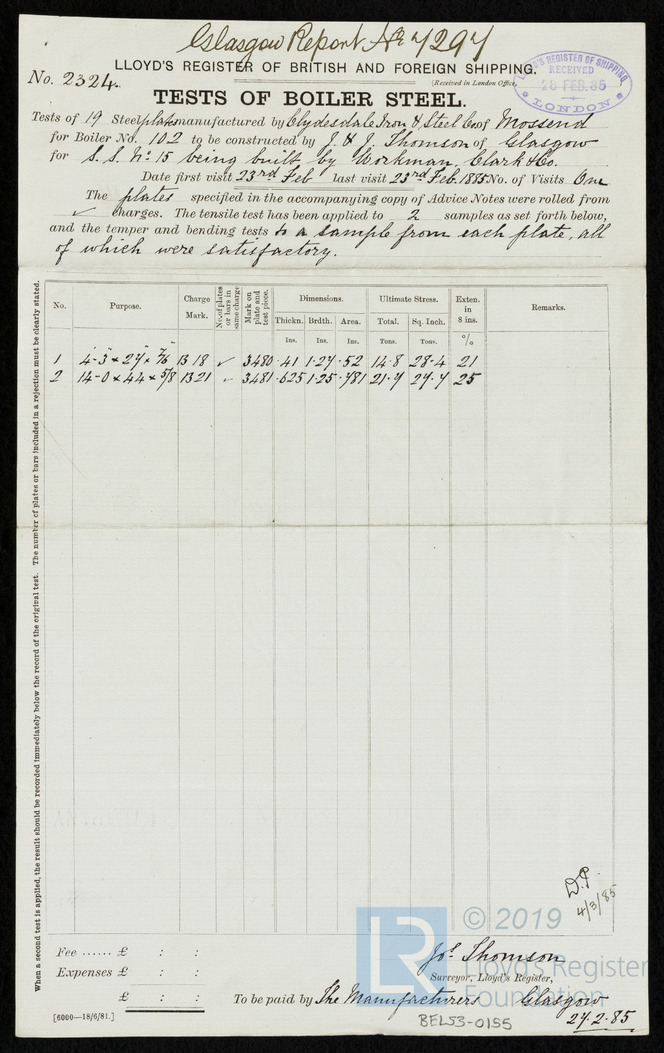 Glasgow Report No 7297
LLOYD'S REGISTER OF BRITISH AND FOREIGN SHIPPING.
No. 2324.
(Received in London Office,
LLOYD'S REGISTER OF SHIPPING
RECEIVED
28 FEB. 85
LONDON
TESTS OF BOILER STEEL.
Tests of 19 Steel plates manufactured by Clydesdale Iron & Steel Co of Mossend
for Boiler No. 102 to be constructed by J. & J. Thomson of Glasgow
for S.S. No 15 being built by Workman, Clark & Co.
Date first visit 23rd Feb last visit 23rd Feb. 1885 No. of Visits One
The plates specified in the accompanying copy of Advice Notes were rolled from
✓ charges. The tensile test has been applied to 2 samples as set forth below,
and the temper and bending tests to a sample from each plate, all
of which were satisfactory.
No. Purpose. Charge Mark. No. of plates or bars in same charge Mark on plate and test piece. Dimensions. Ultimate Stress. Exten. in 8 ins. Remarks.
Thickn. Brdth. Area. Total. Sq. Inch.
Ins. Ins. Ins. Tons. Tons. %
1 4-3 × 27 × 7/16 1318 ✓ 3480 .41 1.27 .52 14.8 28.4 21
2 14-0 × 44 × 5/8 1321 ✓ 3481 .625 1.25 .781 21.7 27.7 25
When a second test is applied, the result should be recorded immediately below the record of the original test. The number of plates or bars included in a rejection must be clearly stated.
D.P.
4/3/85
LR © 2019
Lloyd's Register
Foundation
Fee ...... £ : :
Expenses £ : :
£ : :
Jos. Thomson
Surveyor, Lloyd's Register,
To be paid by The Manufacturers Glasgow
27.2.85
[6000—18/6/81.]
BEL53-0155